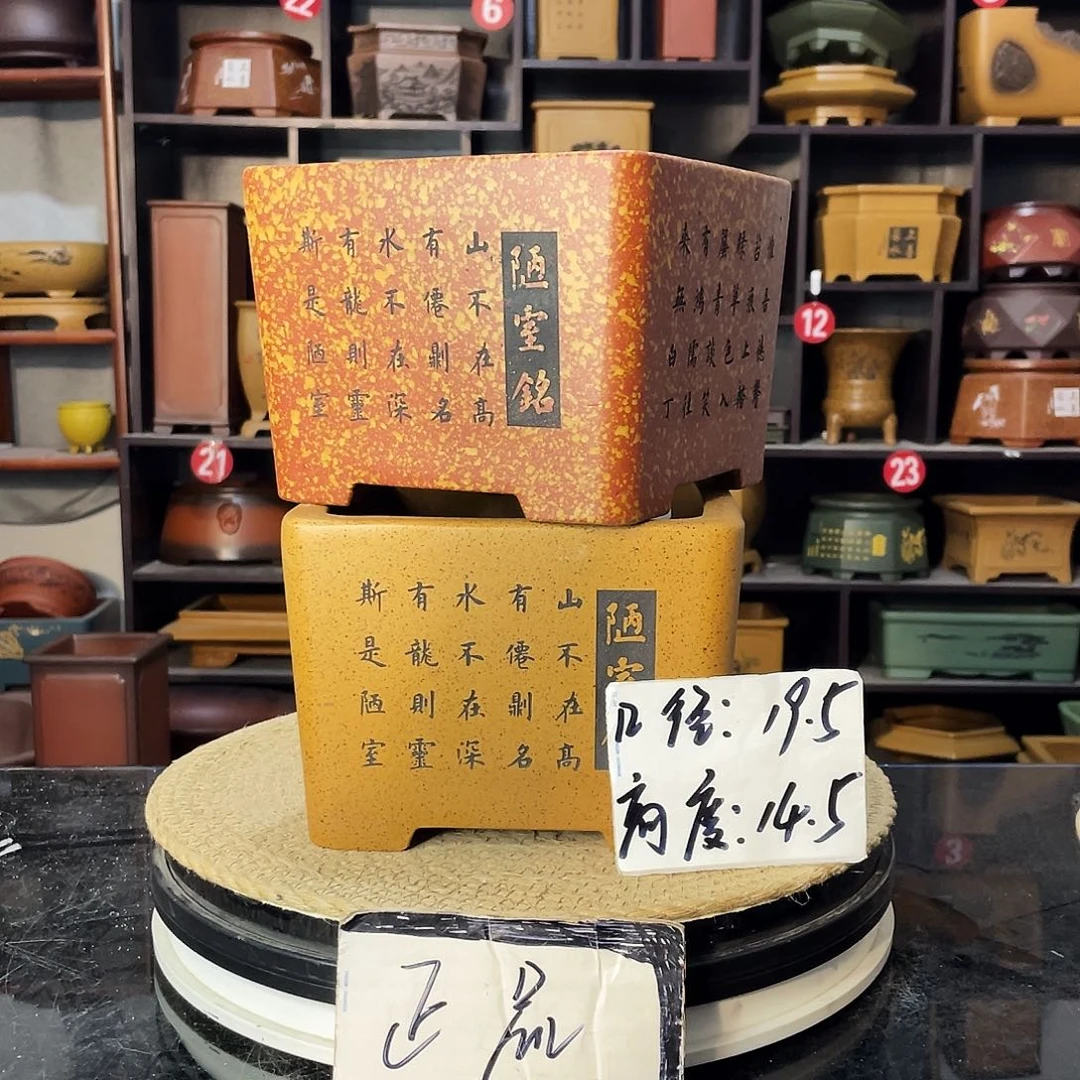 陋室銘
山不在高
有僊則名
水不在深
有龍則靈
斯是陋室
惟吾德馨
苔痕上階
綠草色入
簾青談笑
有鴻儒往
来無白丁
陋室
山不在高
有僊則名
水不在深
有龍則靈
斯是陋室
口径:19.5
高度:14.5
正品
22
6
12
21
23
3